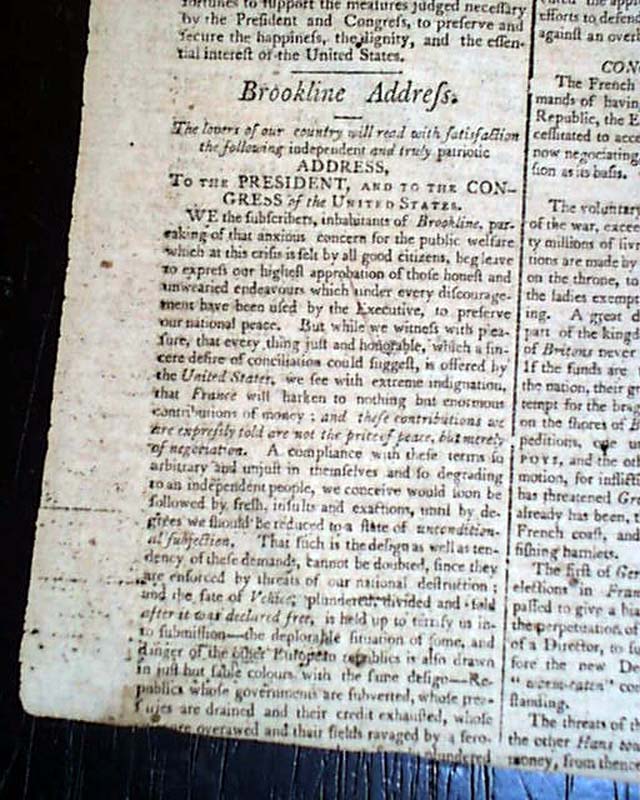 fortunes to support the measures judged necessary
by the President and Congreſs, to preserve and
ſecure the happineſs, the dignity, and the eſſen-
tial intereſt of the United States.
Brookline Addreſs.
The lovers of our country will read with ſatisfaction
the following independent and truly patriotic
ADDRESS,
To the PRESIDENT, and to the CON-
GRESS of the United States.
WE the ſubſcribers, inhabitants of Brookline, par-
taking of that anxious concern for the public welfare
which at this criſis is felt by all good citizens, beg leave
to expreſs our higheſt approbation of thoſe honeſt and
unwearied endeavours which under every diſcourage-
ment have been uſed by the Executive, to preſerve
our national peace. But while we witneſs with plea-
ſure, that every thing juſt and honorable, which a ſin-
cere deſire of conciliation could ſuggeſt, is offered by
the United States, we ſee with extreme indignation,
that France will harken to nothing but enormous
contributions of money; and theſe contributions we
are expreſsly told are not the price of peace, but merely
of negociation. A compliance with theſe terms ſo
arbitrary and unjuſt in themſelves and ſo degrading
to an independent people, we conceive would ſoon be
followed by freſh inſults and exactions, until by de-
grees we ſhould be reduced to a ſtate of uncondition-
al ſubjection. That ſuch is the deſign as well as ten-
dency of theſe demands, cannot be doubted, ſince they
are enforced by threats of our national deſtruction;
and the fate of Venice, plundered, divided and ſold
after it was declared free, is held up to terrify us in-
to ſubmiſſion—the deplorable ſituation of ſome, and
danger of the other European republics is alſo drawn
in juſt but ſable colours with the ſame deſign—Re-
publics whoſe governments are ſubverted, whoſe
are drained and their credit exhauſted, whoſe
overawed and their fields ravaged by a fero-
plundered
efforts to defend
againſt an overb
CON
The French
mands of having
Republic, the E
ceſſitated to acce
now negociating,
ſion as its baſis.
The voluntary
of the war, excee
ty millions of livr
tions are made by
on the throne, to
the ladies exemp
ing. A great d
part of the kingd
of Britons never
If the funds are
the nation, their gr
tempt for the bra
on the ſhores of B
peditions, one
POYS, and the oth
motion, for inflicti
has threatened Gre
already has been,
French coaſt, and
fiſhing hamlets.
The firſt of Ger
elections in Fran
paſſed to give a bi
the perpetuation of
of a Director, to ſu
fore the new De
"worm-eaten" con
ſtanding.
The threats of th
the other Hans town
money, from thence